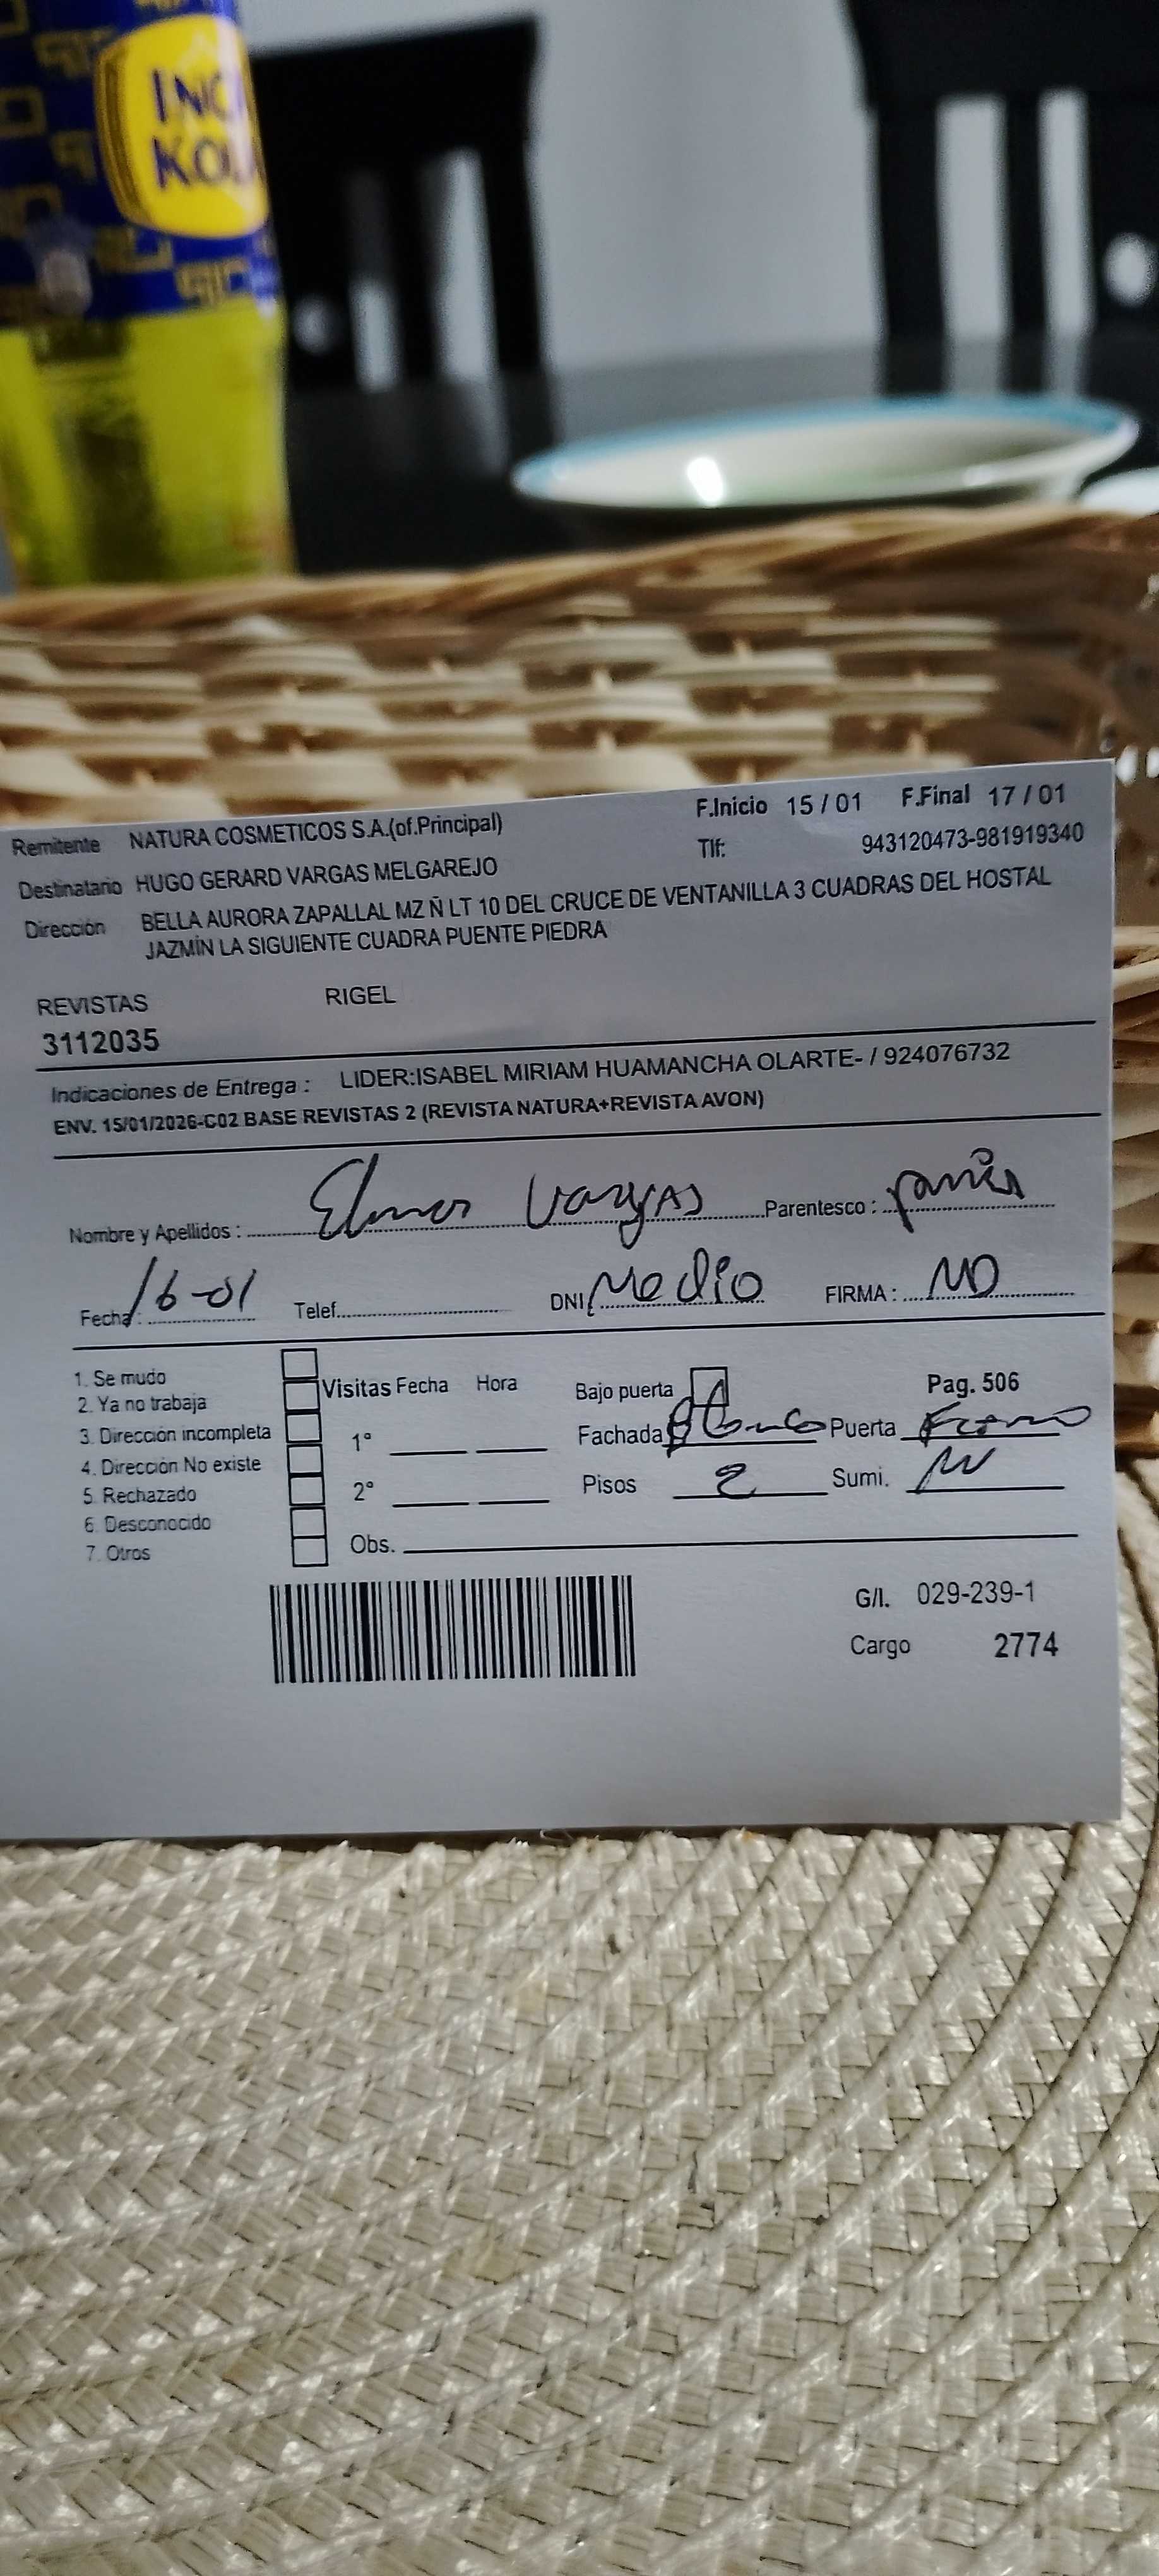 INC
KOL
F.Inicio 15 / 01 F.Final 17 / 01
Remitente NATURA COSMETICOS S.A.(of.Principal)
Tlf: 943120473-981919340
Destinatario HUGO GERARD VARGAS MELGAREJO
Dirección BELLA AURORA ZAPALLAL MZ Ñ LT 10 DEL CRUCE DE VENTANILLA 3 CUADRAS DEL HOSTAL
JAZMÍN LA SIGUIENTE CUADRA PUENTE PIEDRA
REVISTAS RIGEL
3112035
Indicaciones de Entrega : LIDER:ISABEL MIRIAM HUAMANCHA OLARTE- / 924076732
ENV. 15/01/2026-C02 BASE REVISTAS 2 (REVISTA NATURA+REVISTA AVON)
Nombre y Apellidos : Elmer Vargas Parentesco :
Fecha : 16-01 Telef. DNI Medio FIRMA : ND
1. Se mudo
2. Ya no trabaja
3. Dirección incompleta
4. Dirección No existe
5. Rechazado
6. Desconocido
7. Otros
Visitas Fecha Hora
1°
2°
Obs.
Bajo puerta
Pag. 506
Fachada Blanco Puerta Fierro
Pisos 2 Sumi.
G/I. 029-239-1
Cargo 2774